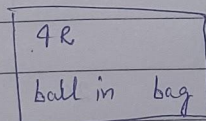 4R
ball in bag